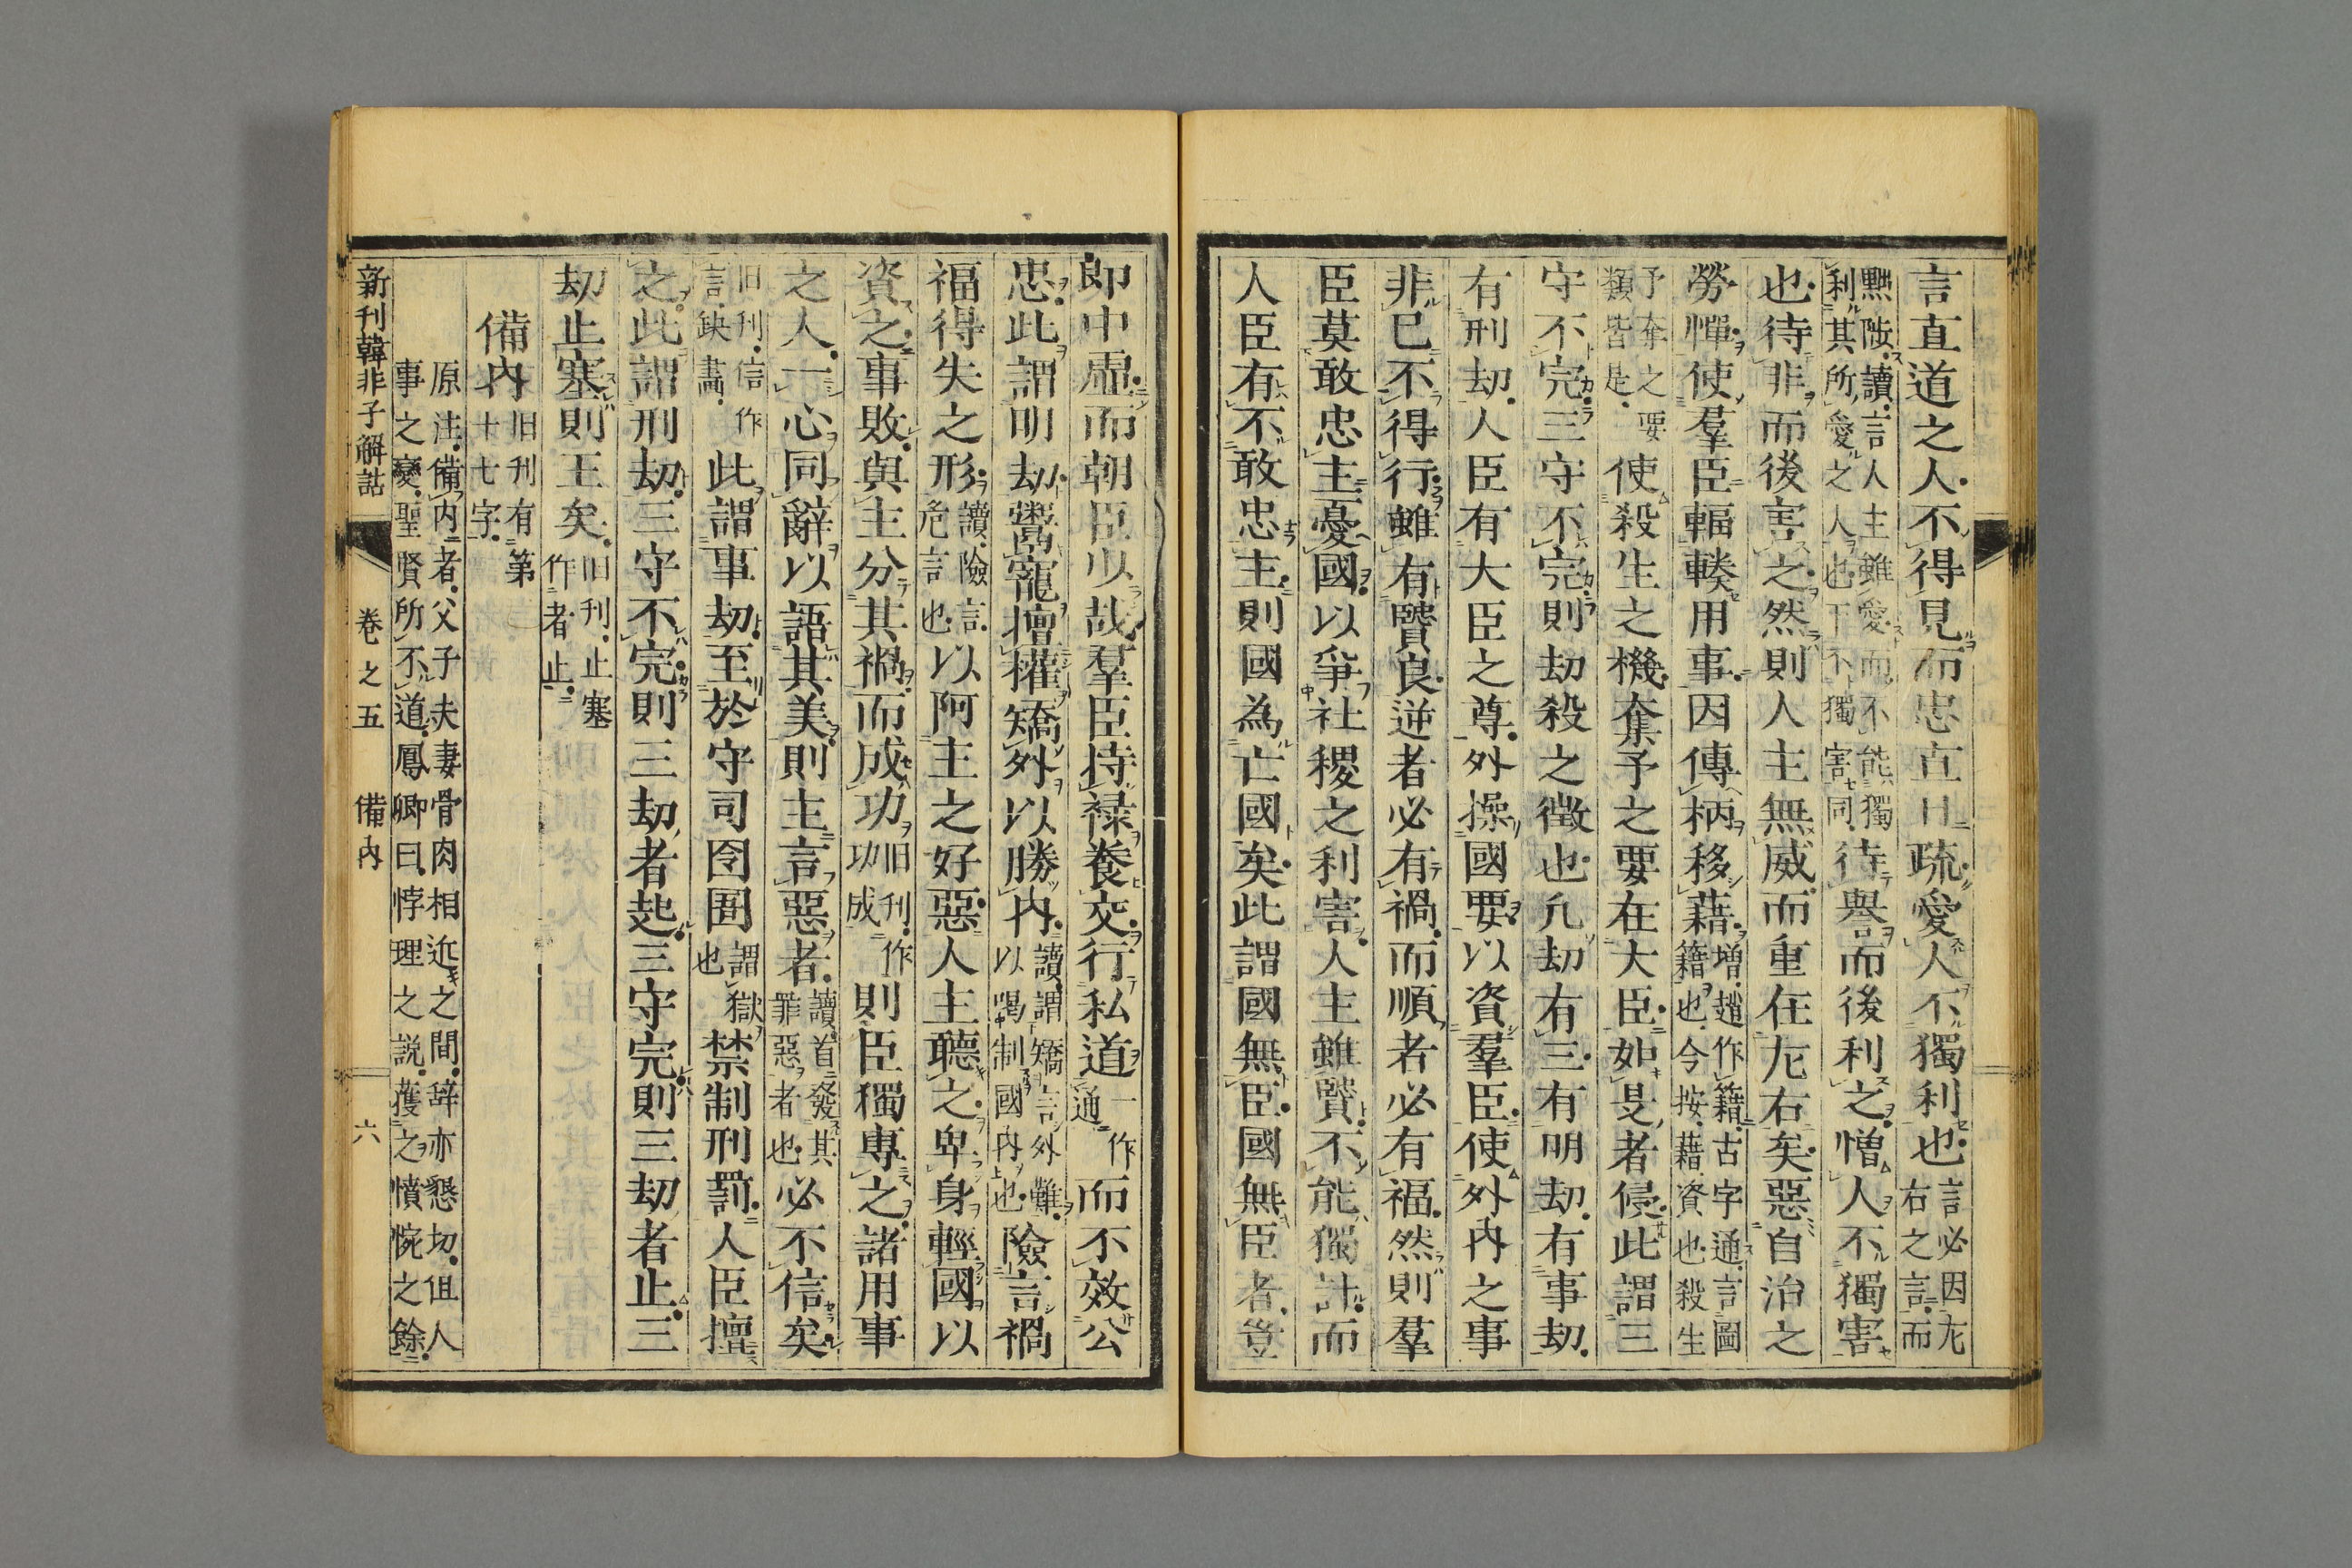 言直道之人不得見而忠直日疏愛人不獨利也言必因左右之言而
黙陟讀言人主雖愛而不能獨利其所愛之人也下不獨害同待譽而後利之憎人不獨害
也待非而後害之然則人主無威而重在左右矣惡自治之
勞憚使羣臣輻輳用事因傳柄移藉増趙作籍古字通言圖籍也今按藉資也殺生
予奪之要類皆是使殺生之機奪予之要在大臣如是者侵此謂三
守不完三守不完則劫殺之徵也凢劫有三有明劫有事劫
有刑劫人臣有大臣之尊外操國要以資羣臣使外内之事
非已不得行雖有賢良逆者必有禍而順者必有福然則羣
臣莫敢忠主憂國以爭社稷之利害人主雖賢不能獨計而
人臣有不敢忠主則國為亡國矣此謂國無臣國無臣者豈
郎中虛而朝臣少哉羣臣持禄養交行私道一作通而不效公
忠此謂明劫鬻寵擅權矯外以勝内讀謂矯言外難以喝制國内也險言禍
福得失之形讀險言危言也以阿主之好惡人主聽之卑身輕國以
資之事敗與主分其禍而成功旧刋作功成則臣獨專之諸用事
之人一心同辭以語其美則主言惡者讀首發其罪惡者也必不信矣
旧刋信作言缺畫此謂事劫至於守司囹圄謂獄也禁制刑罰人臣擅
之此謂刑劫三守不完則三劫者起三守完則三劫者止三
劫止塞則王矣旧刋止塞作者止
備内旧刋有第十七字
原注備内者父子夫妻骨肉相近之間辞亦懇切但人
事之變聖賢所不道鳳卿曰悖理之説獲之憤惋之餘
新刊韓非子解詁 卷之五 備内 六